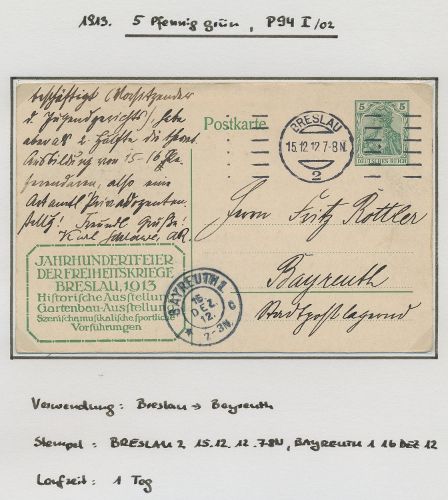 1913. 5 Pfennig grün, P94 I/02
beschäftigt (Vorsitzender
u. Jugendgerichts) habe
aber als 2. Hälfte die
Ausbildung von 15-16
also eine
Art
Grüße!
Karl
Postkarte
BRESLAU
15.12.12.7-8N.
2
5 5
DEUTSCHES REICH
Herrn Fritz Rottler
Bayreuth
Stadtpostlagernd
JAHRHUNDERTFEIER
DER FREIHEITSKRIEGE
BRESLAU, 1913
Historische Ausstellung
Gartenbau-Ausstellung
Szenische, musikalische, sportliche
Vorführungen
BAYREUTH 1
16.
DEZ.
12.
7-8N.
Verwendung: Breslau → Bayreuth
Stempel: BRESLAU 2 15.12.12.7-8N, BAYREUTH 1 16 DEZ 12
Laufzeit: 1 Tag